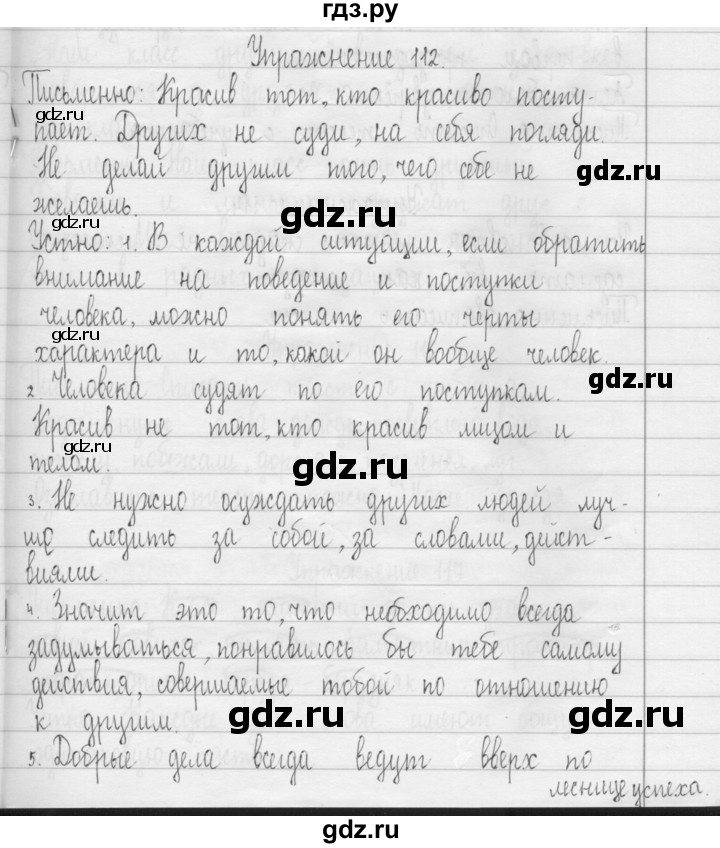 гдз.ру
Упражнение 112.
Письменно: Красив тот, кто красиво посту-
gdz.ru
пает. Других не суди, на себя погляди.
Не делай другим того, чего себе не
gdz.ru
gdz.ru
желаешь.
Устно: 1. В каждой ситуации, если обратить
внимание на поведение и поступки
gdz.ru
человека, можно понять его черты
характера и то, какой он вообще человек.
gdz.ru
2. Человека судят по его поступкам.
Красив не тот, кто красив лицом и
gdz.ru
телом.
gdz.ru
3. Не нужно осуждать других людей луч-
ше следить за собой, за словами, дейст-
виями.
gdz.ru
4. Значит это то, что необходимо всегда
gdz.ru
задумываться, понравилось бы тебе самому
действия, совершаемые тобой по отношению
к другим.
gdz.ru
gdz.ru
5. Добрые дела всегда ведут вверх по
gdz.ru
леснице успеха.
gdz.ru
gdz.ru